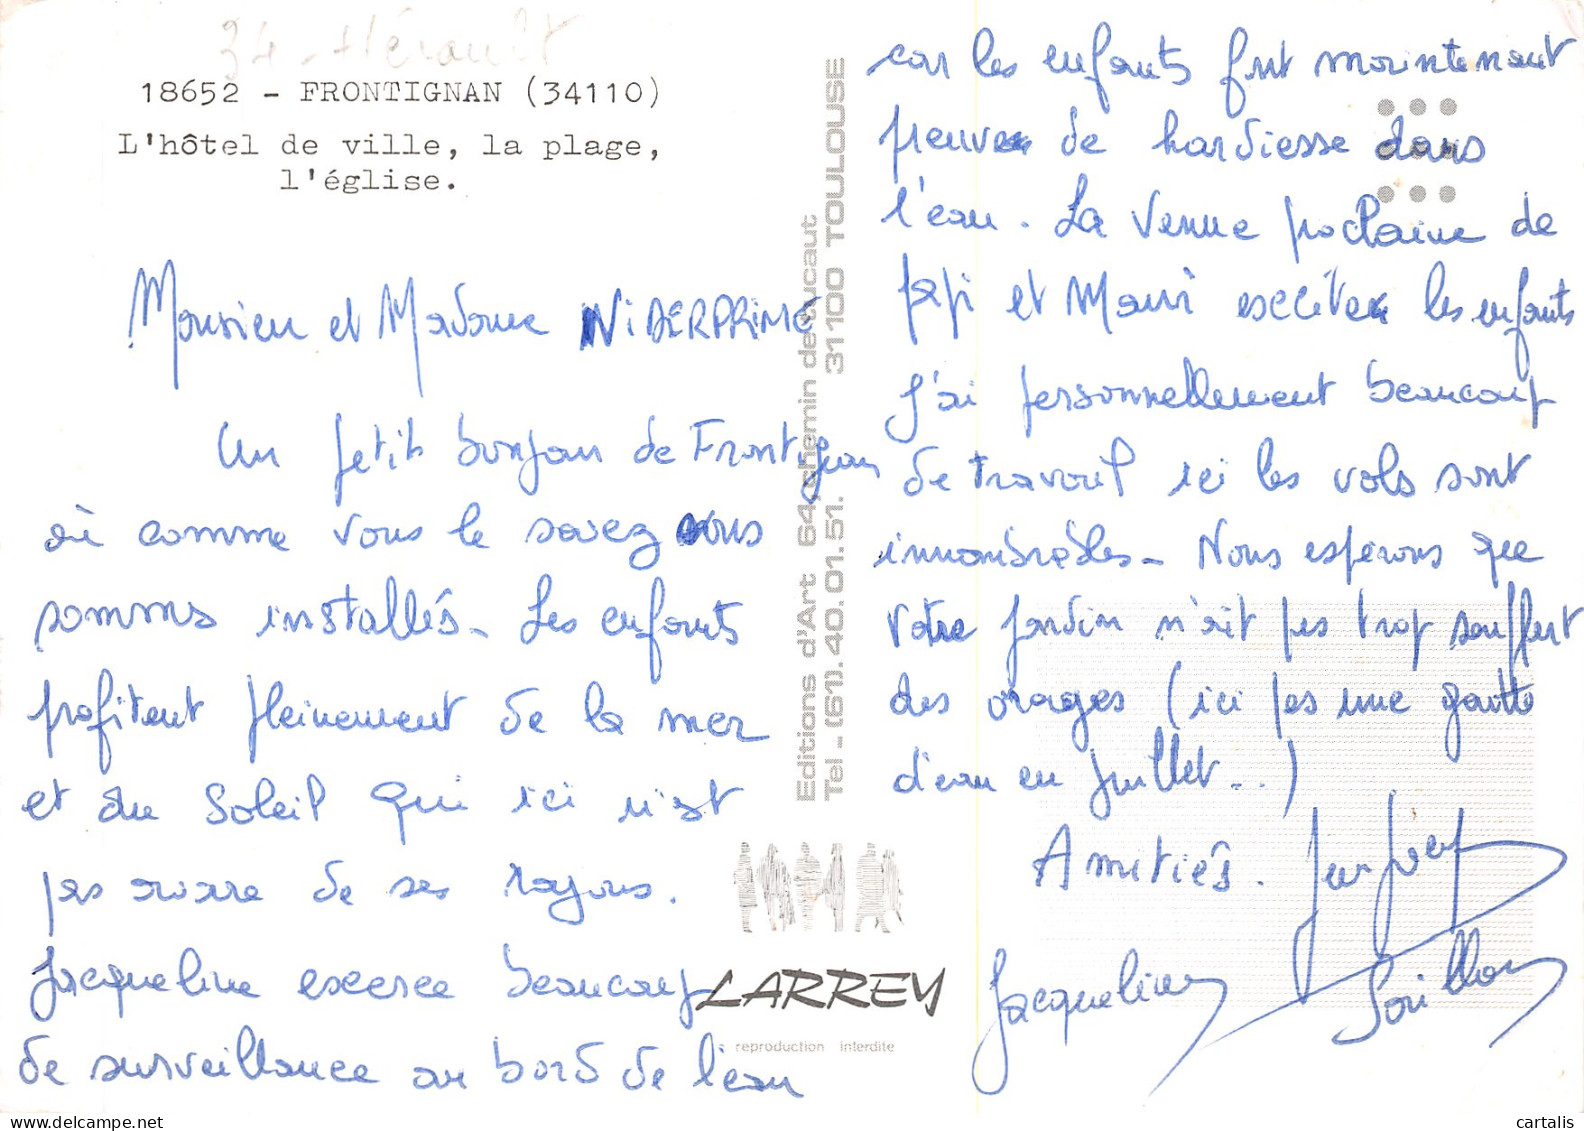 34 - Hérault
18652 - FRONTIGNAN (34110)
L'hôtel de ville, la plage,
l'église.
Monsieur et Madame NIDERPRIME
Un petit bonjour de Frontignan
où comme vous le savez nous
sommes installés. Les enfants
profitent pleinement de la mer
et du soleil qui ici n'est
pas avare de ses rayons.
Jacqueline exerce beaucoup
de surveillance au bord de l'eau
car les enfants font maintenant
preuve de hardiesse dans
l'eau. La venue prochaine de
papi et Mami excite les enfants
J'ai personnellement beaucoup
de travail ici les vols sont
innombrables. Nous espérons que
votre jardin n'ait pas trop souffert
des orages (ici pas une goutte
d'eau en juillet...)
Amitiés.
Jacqueline
Editions d'Art 64, chemin de Tucaut
Tel - (61). 40.01.51. 31100 TOULOUSE
LARREY
reproduction interdite
www.delcampe.net
cartalis